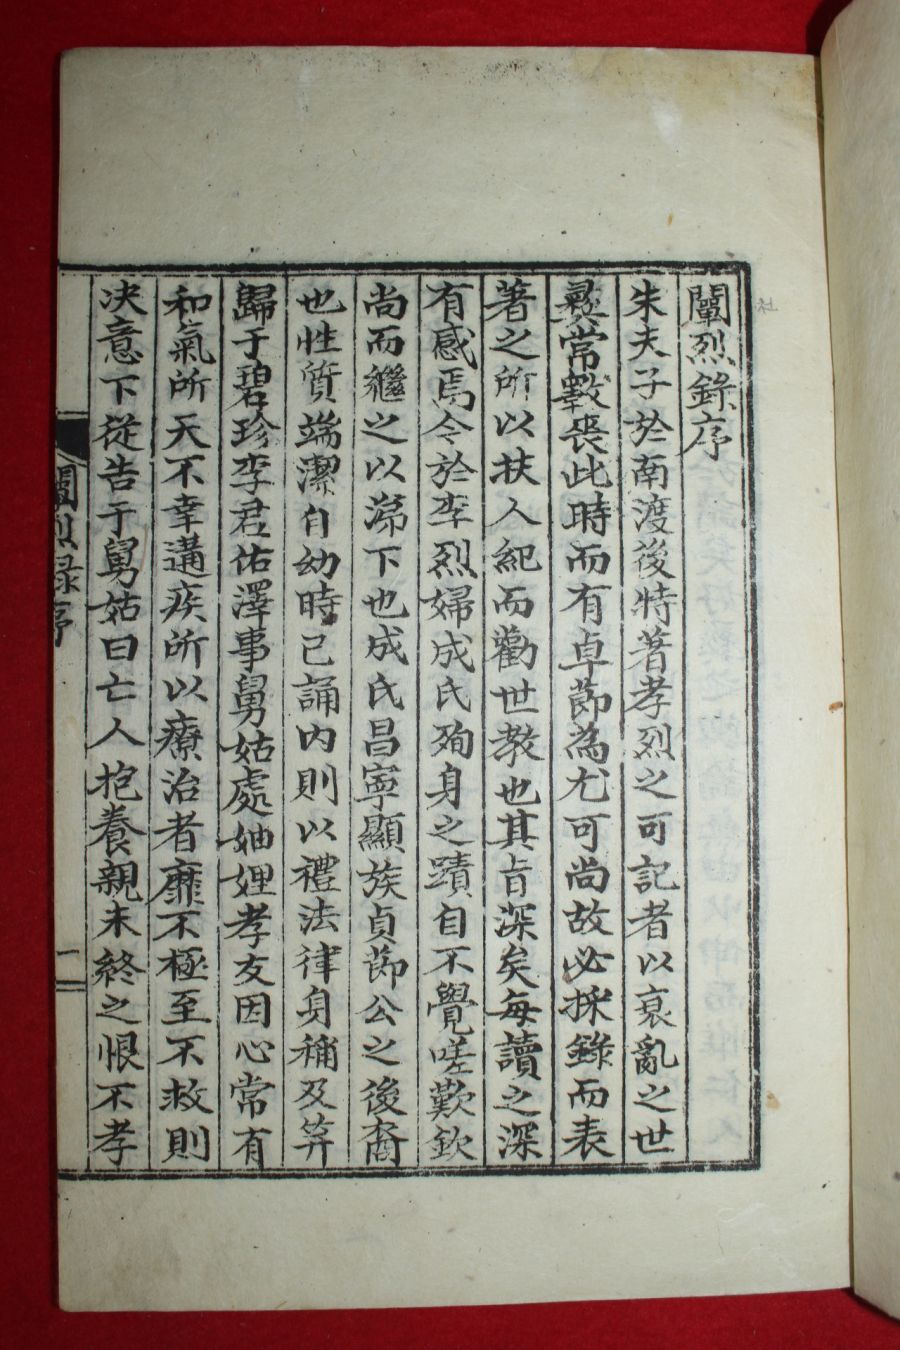 闡烈錄序
朱夫子於南渡後特著孝烈之可記者以衰亂之世
彛常斁喪此時而有卓節為尤可尚故必採錄而表
著之所以扶人紀而勸世敎也其旨深矣每讀之深
有感焉今於李烈婦成氏殉身之蹟自不覺嗟歎欽
尚而繼之以涕下也成氏昌寧顯族貞節公之後裔
也性質端潔自幼時已誦內則以禮法律身稱及笄
歸于碧珍李君佑澤事舅姑處妯娌孝友因心常有
和氣所天不幸遘疾所以療治者靡不極至不救則
决意下從告于舅姑曰亡人抱養親未終之恨不孝
闡烈錄序
一